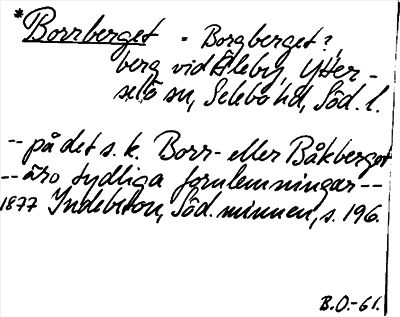 *Borrberget = Borgberget?,
berg vid Åleby, Ytter-
selö sn, Selebo hd, Söd. l.
-- på det s. k. Borr- eller Båkberget
-- äro tydliga fornlemningar --
1877 Indebetou, Söd. minnen, s. 196.
B.O.-61.